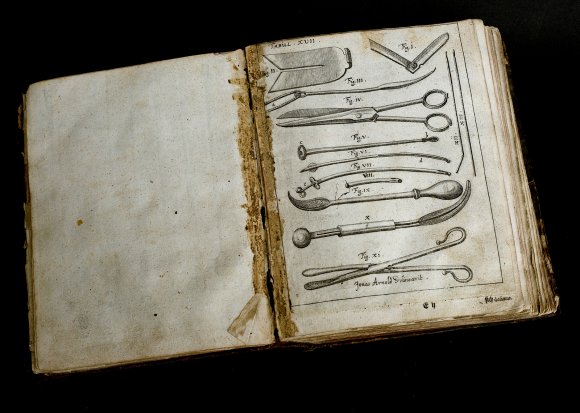 TABUL. XVII.
II
Fig. I.
Fig. III.
Fig. IV.
Fig. V.
Fig. VI.
Fig. VII.
VIII.
Fig. IX
X
Fig. XI.
Jonas Arnold Delineavit